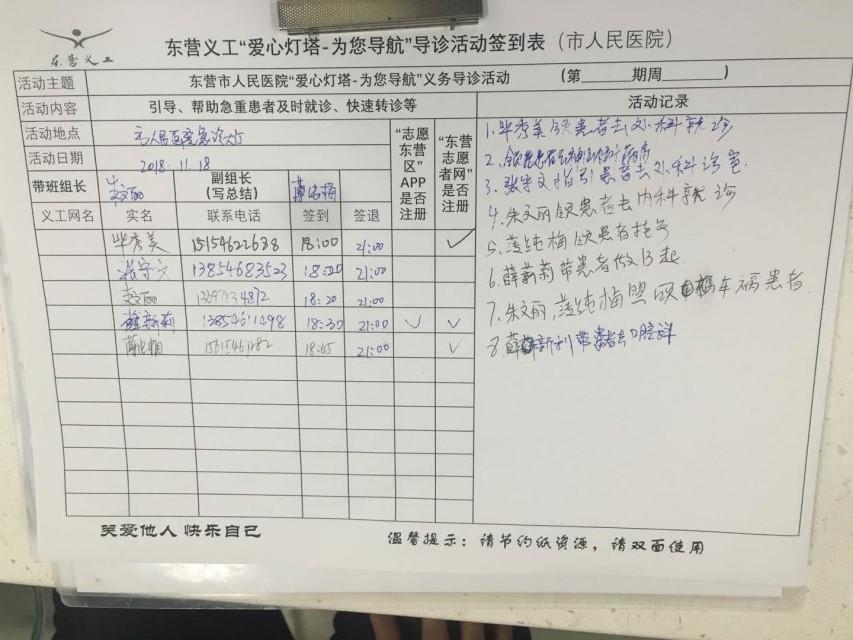 东营义工
东营义工“爱心灯塔-为您导航”导诊活动签到表（市人民医院）
活动主题 东营市人民医院“爱心灯塔-为您导航”义务导诊活动 （第______期周______）
活动内容 引导、帮助急重患者及时就诊、快速转诊等 活动记录
活动地点 市人民医院急诊大厅
活动日期 2018.11.18
带班组长 副组长（写总结） “志愿东营区”APP是否注册 “东营志愿者网”是否注册
义工网名 实名 联系电话 签到 签退
毕秀美 15154622638 18:00 21:00 ✓
张宇文 13854683523 18:20 21:00
18:20 21:00
薛新莉 13854611498 18:30 21:00 ✓ ✓
15615461282 18:45 21:00 ✓
1.毕秀美领患者去外科就诊
2.领患者
3.张宇文指引患者去外科诊室.
4.朱文丽领患者去内科就诊
5.纯梅领患者挂号
6.薛新莉带患者做B超
7.朱文丽,纯梅 车祸患者.
8.薛新利带患者去口腔科
关爱他人 快乐自己
温馨提示：请节约纸资源，请双面使用